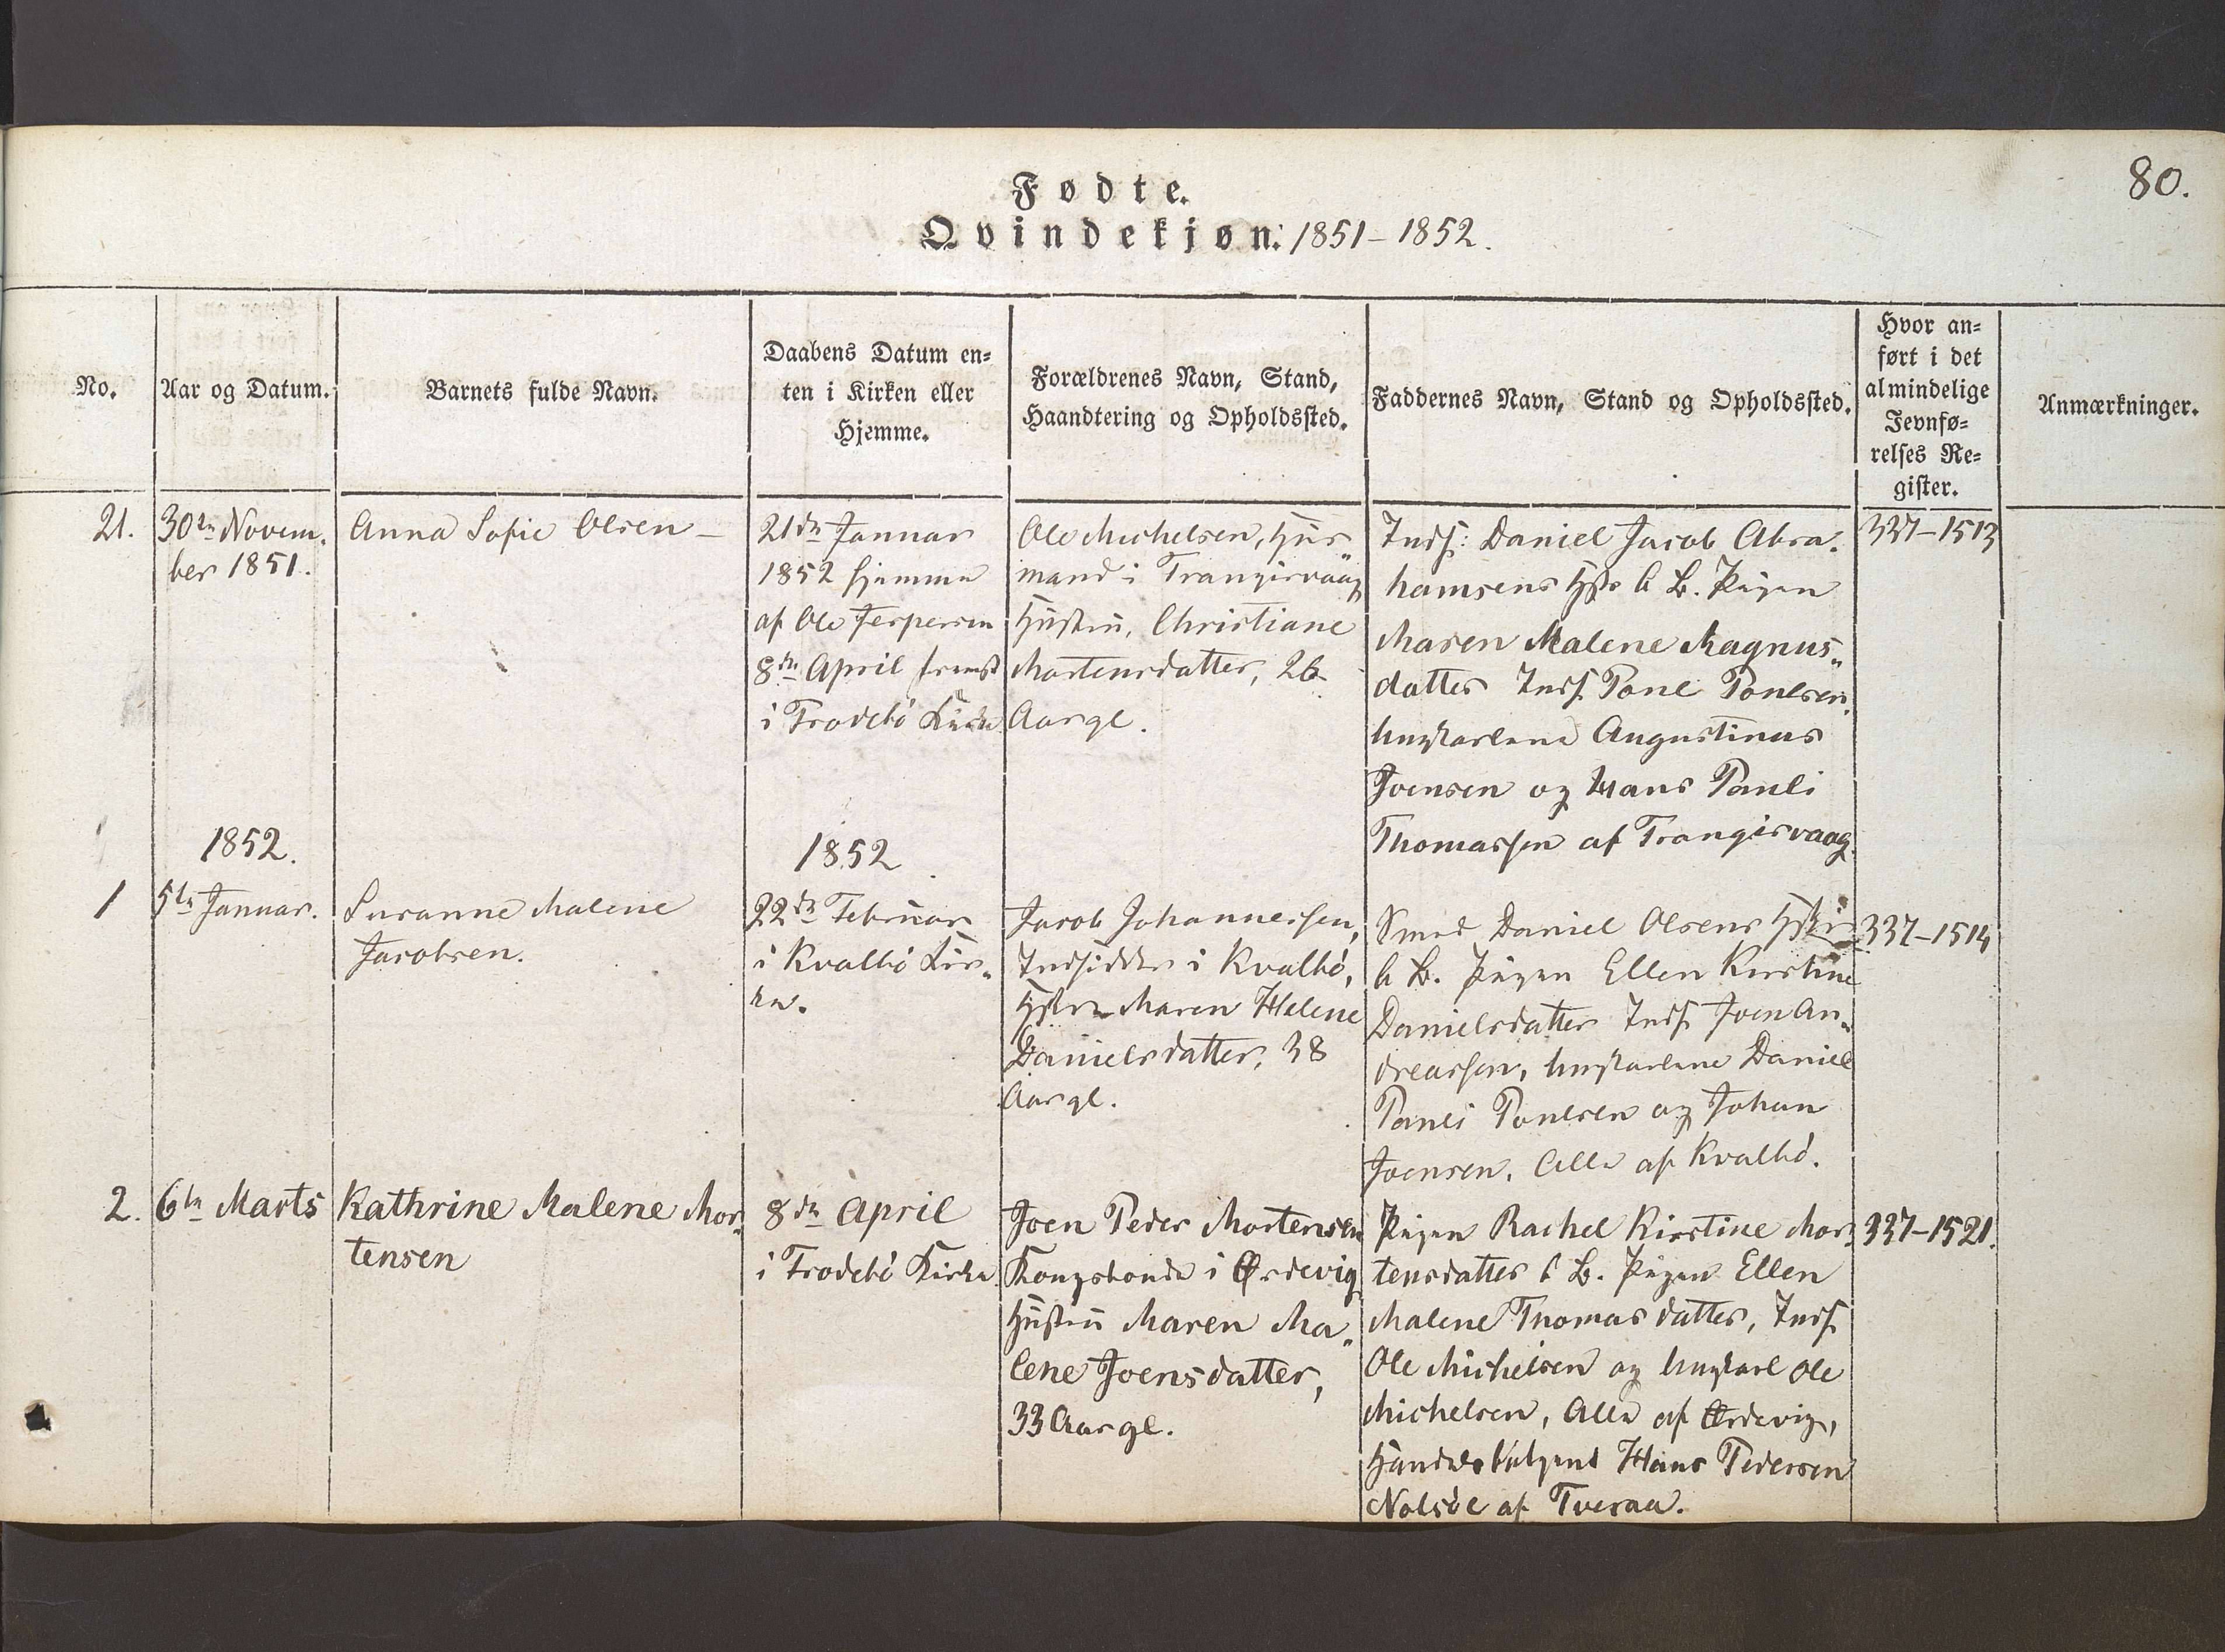 80.
Fødte.
Qvindekjøn. 1851-1852.
No.
Aar og Datum.
Barnets fulde Navn.
Daabens Datum en-
ten i Kirken eller
Hjemme.
Forældrenes Navn, Stand,
Haandtering og Opholdssted.
Faddernes Navn, Stand og Opholdssted.
Hvor an-
ført i det
almindelige
Jevnfø-
relses Re-
gister.
Anmærkninger.
21.
30te Novem-
ber 1851.
Anna Sofie Olsen -
21de Januar
1852 hjemme
af Ole Jespersen
8de April fremst
i Frodebø Kirke
Ole Michelsen, Huus-
mand i Trangisvaag
Hustru, Christiane
Mortensdatter, 26
Aar gl.
Inds: Daniel Jacob Abra-
hamsens Hstr b B. Pigen
Maren Malene Magnus-
datter Inds. Poul Poulsen,
Ungkarlene Augustinus
Joensen og Hans Pauli
Thomassen af Trangisvaag.
337-1513
1852.
1852
1
5te Januar.
Susanne Malene
Jacobsen.
22de Februar
i Kvalbø Kir-
ke.
Jacob Johannessen,
Indsidder i Kvalbø,
Hstru Maren Helene
Danielsdatter, 38
Aar gl.
Smed Daniel Olsens Hstru
b B. Pigen Ellen Kirstine
Danielsdatter Inds. Joen An-
dreassen, Ungkarlene Daniel
Pauli Poulsen og Johan
Joensen, Alle af Kvalbø.
337-1514
2.
6te Marts
Kathrine Malene Mor-
tensen
8de April
i Frodebø Kirke
Joen Peder Mortensen
Kongsbonde i Ørdevig
Hustru Maren Ma-
lene Joensdatter,
33 Aar gl.
Pigen Rachel Kirstine Mor-
tensdatter b B. Pigen Ellen
Malene Thomasdatter, Inds.
Ole Michelsen og Ungkarl Ole
Michelsen, Alle af Ørdevig,
Handelsbetjent Hans Pedersen
Nolsöe af Tveraa.
337-1521.